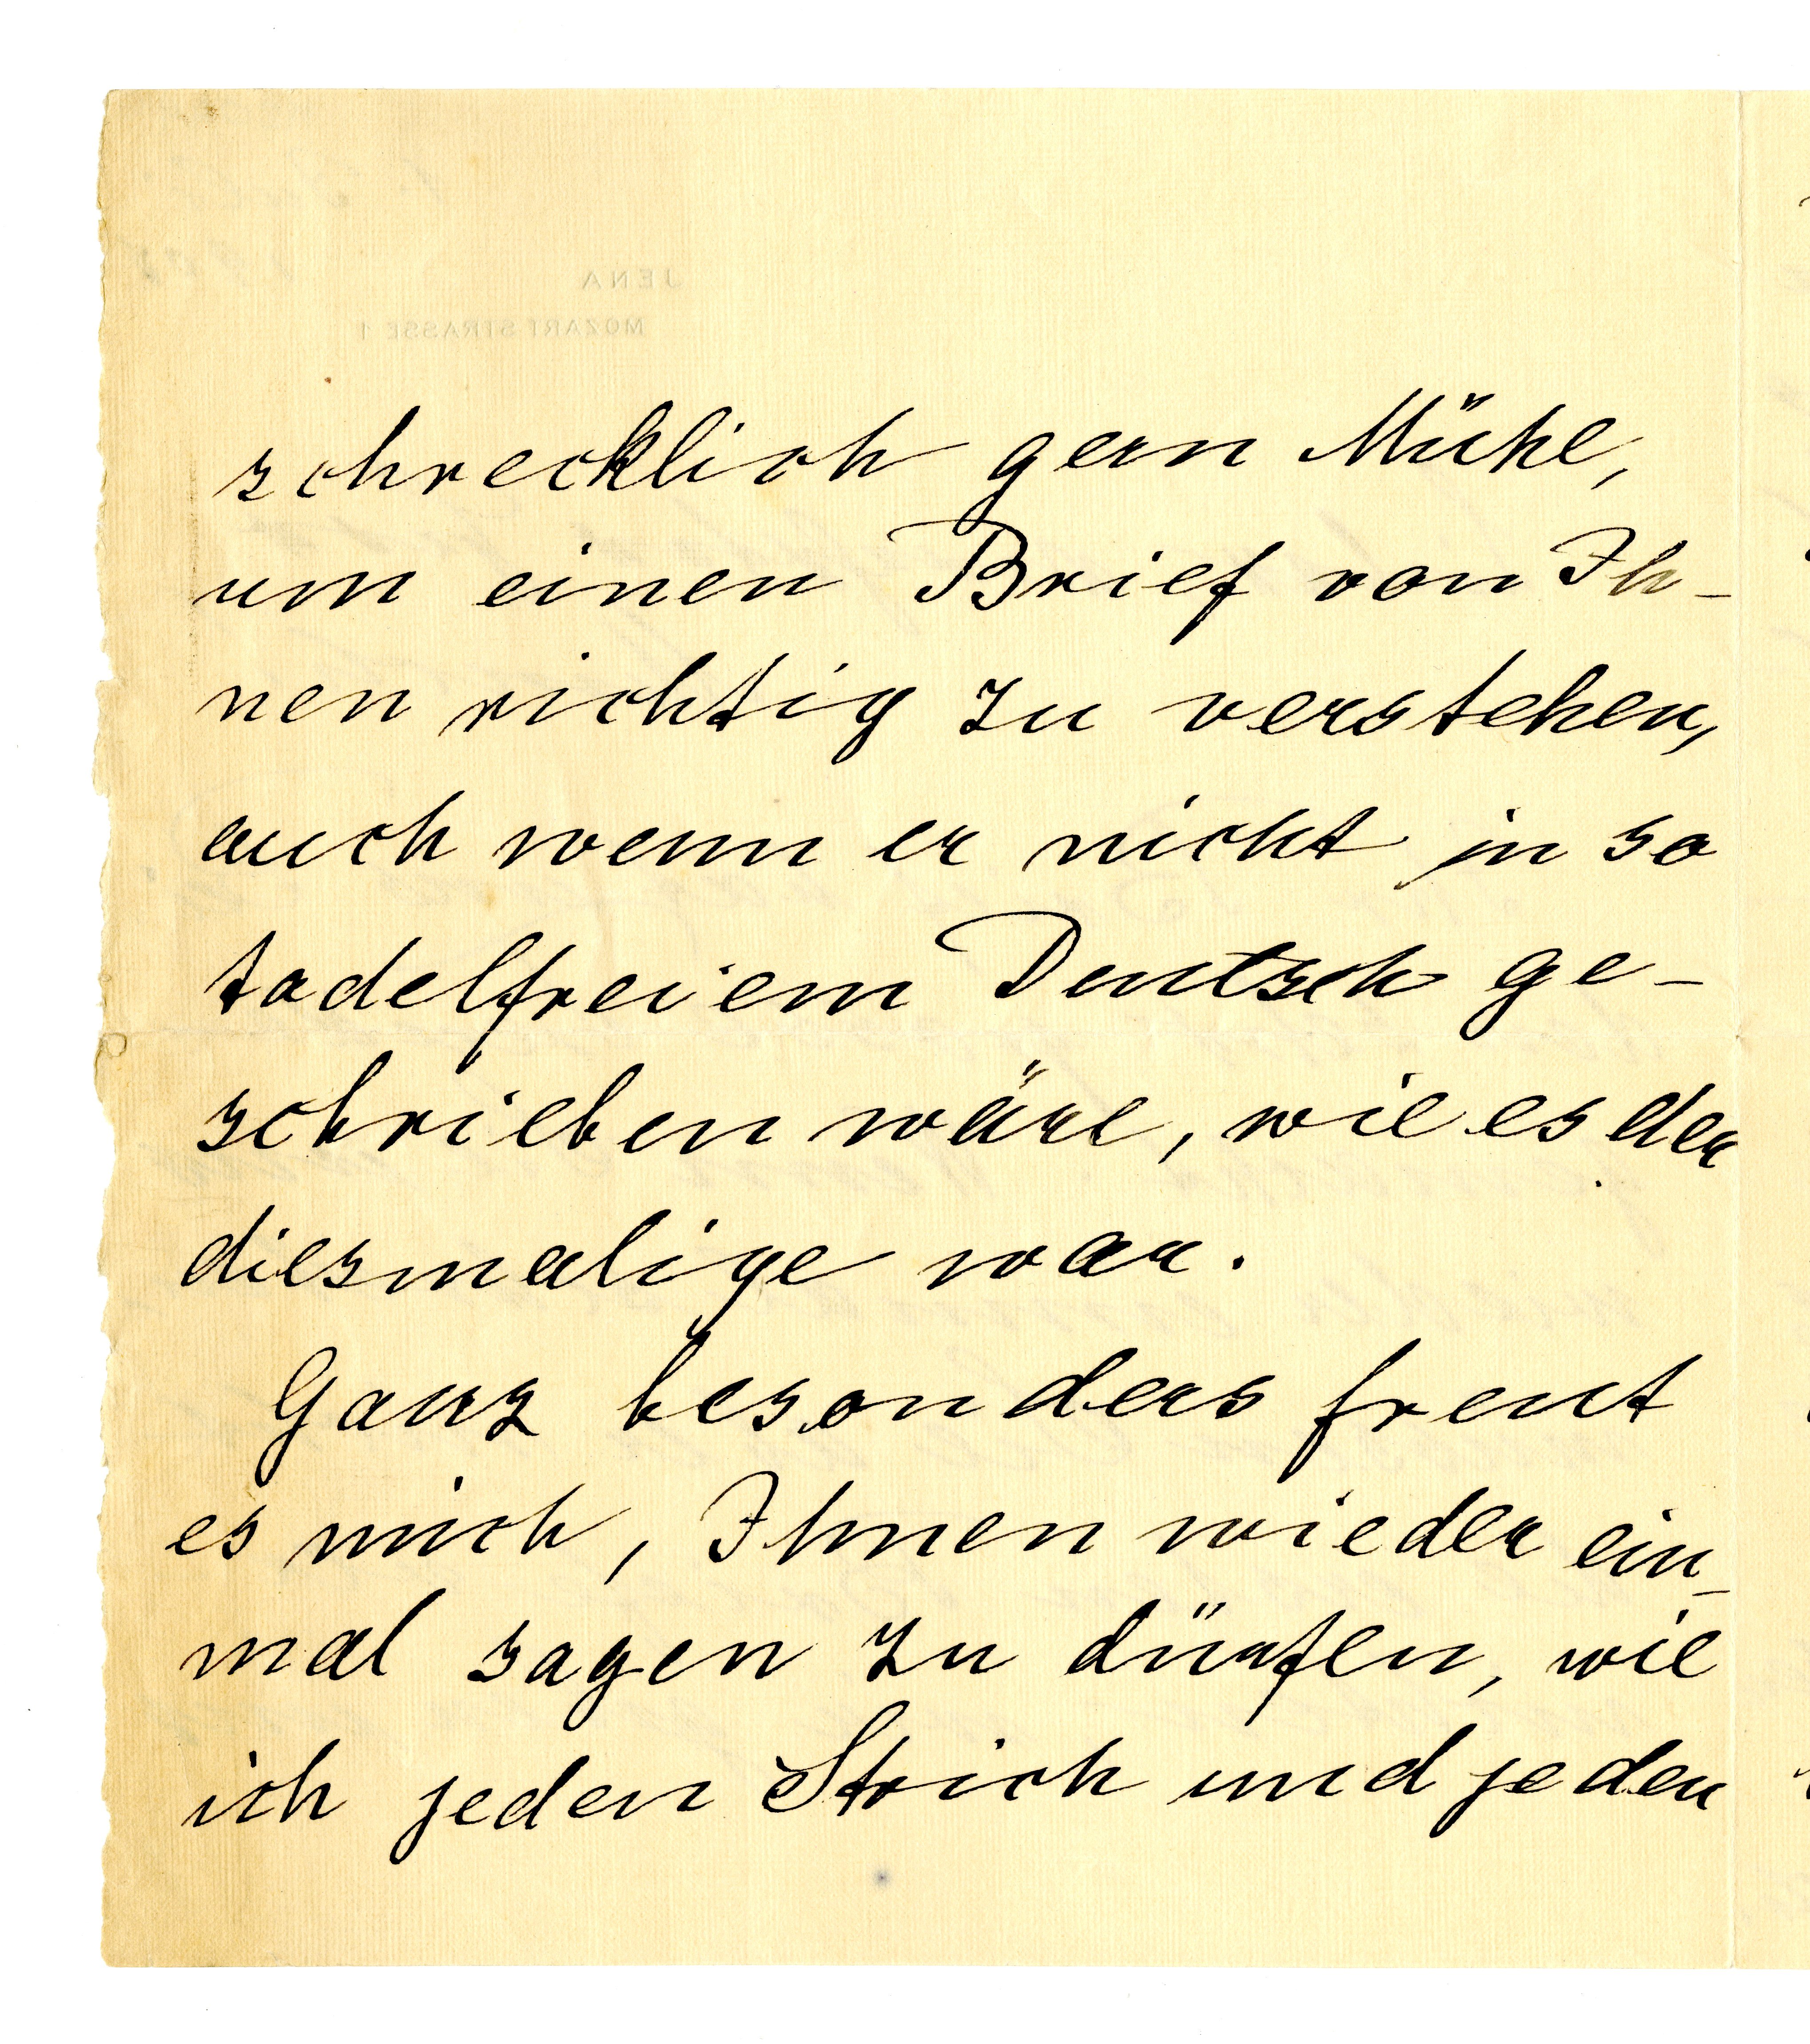 JENA
MOZARTSTRASSE 1
schrecklich gern Mühe,
um einen Brief von Ih-
nen richtig zu verstehen,
auch wenn er nicht in so
tadelfreiem Deutsch ge-
schrieben wäre, wie es der
diesmalige war.
Ganz besonders freut
es mich, Ihnen wieder ein-
mal sagen zu dürfen, wie
ich jeden Strich und jeden